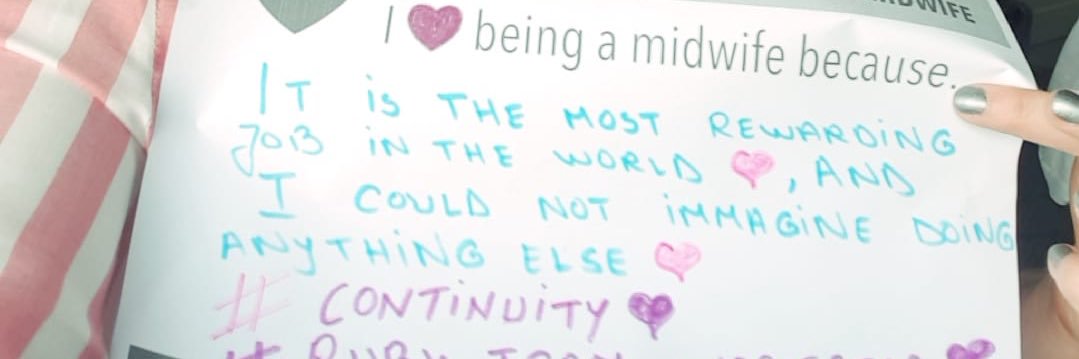 MIDWIFE
I ❤ being a midwife because.
IT is THE MOST REWARDING
JOB iN THE WORLD ♥, AND
I COULD NOT iMMAGiNE DOING
ANYTHiNG ELSE ♥
# CONTiNUITY ♥